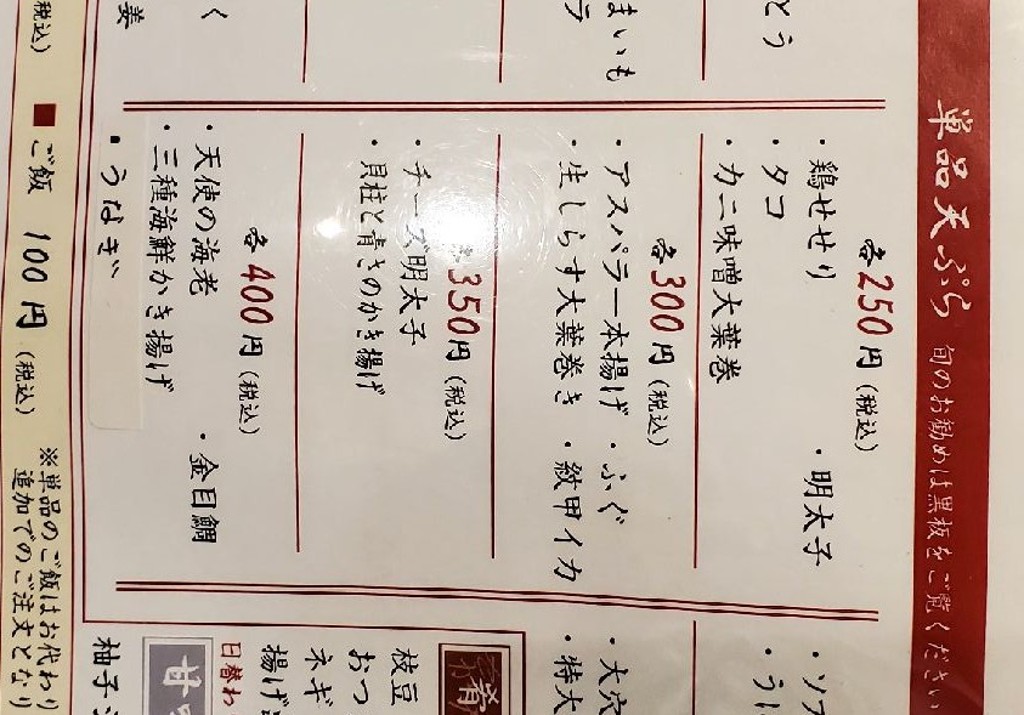 単品天ぷら 旬のお勧めは黒板をご覧ください
とう
まいも
ラ
く
姜
各250円(税込)
・鶏せせり ・明太子
・タコ
・カニ味噌大葉巻
各300円(税込)
・アスパラ一本揚げ ・ふぐ
・生しらす大葉巻き ・紋甲イカ
各350円(税込)
・チーズ明太子
・貝柱と青さのかき揚げ
各400円(税込)
・天使の海老 ・金目鯛
・三種海鮮かき揚げ
・うなぎ
・ソフ
・うに
・大穴
・特大
肴
枝豆
おつ
ネギ
揚げ
日替わ
甘
柚子
税込)
■ご飯 100円(税込)
※単品のご飯はお代わり
追加でのご注文となり